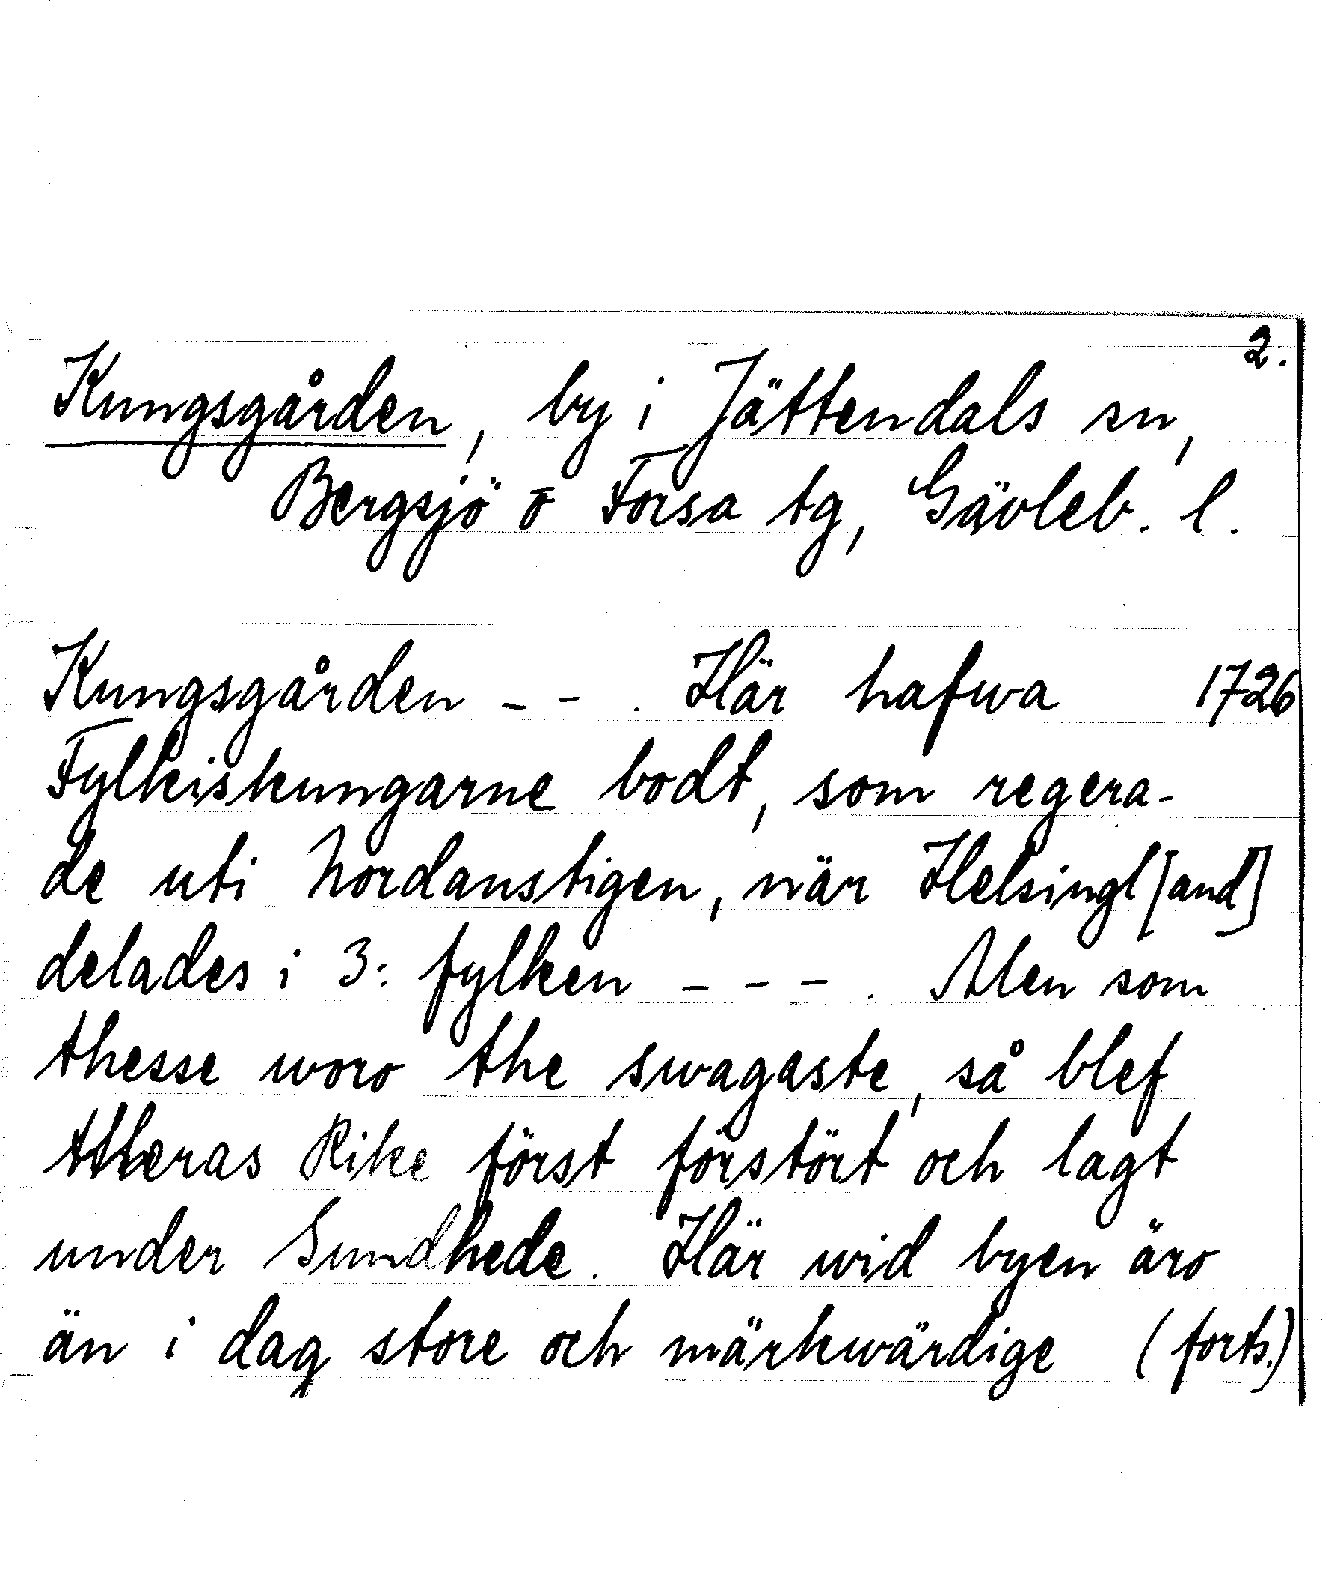 2.
Kungsgården, by i Jättendals sn,
Bergsjö o Forsa tg, Gävleb. l.
Kungsgården - - . Här hafwa 1726
Fylkiskungarne bodt, som regera-
de uti Nordanstigen, när Helsingl[and]
delades i 3: fylken - - - . Men som
thesse woro the swagaste, så blef
theras Rike först förstört och lagt
under Sundhede. Här wid byen äro
än i dag store och märkwärdige (forts.)